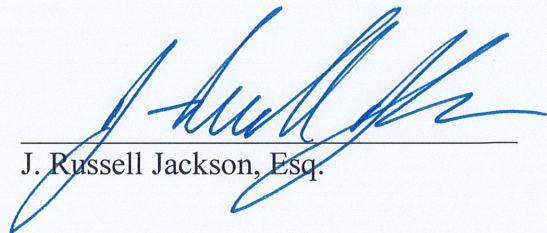 J. Russell Jackson, Esq.